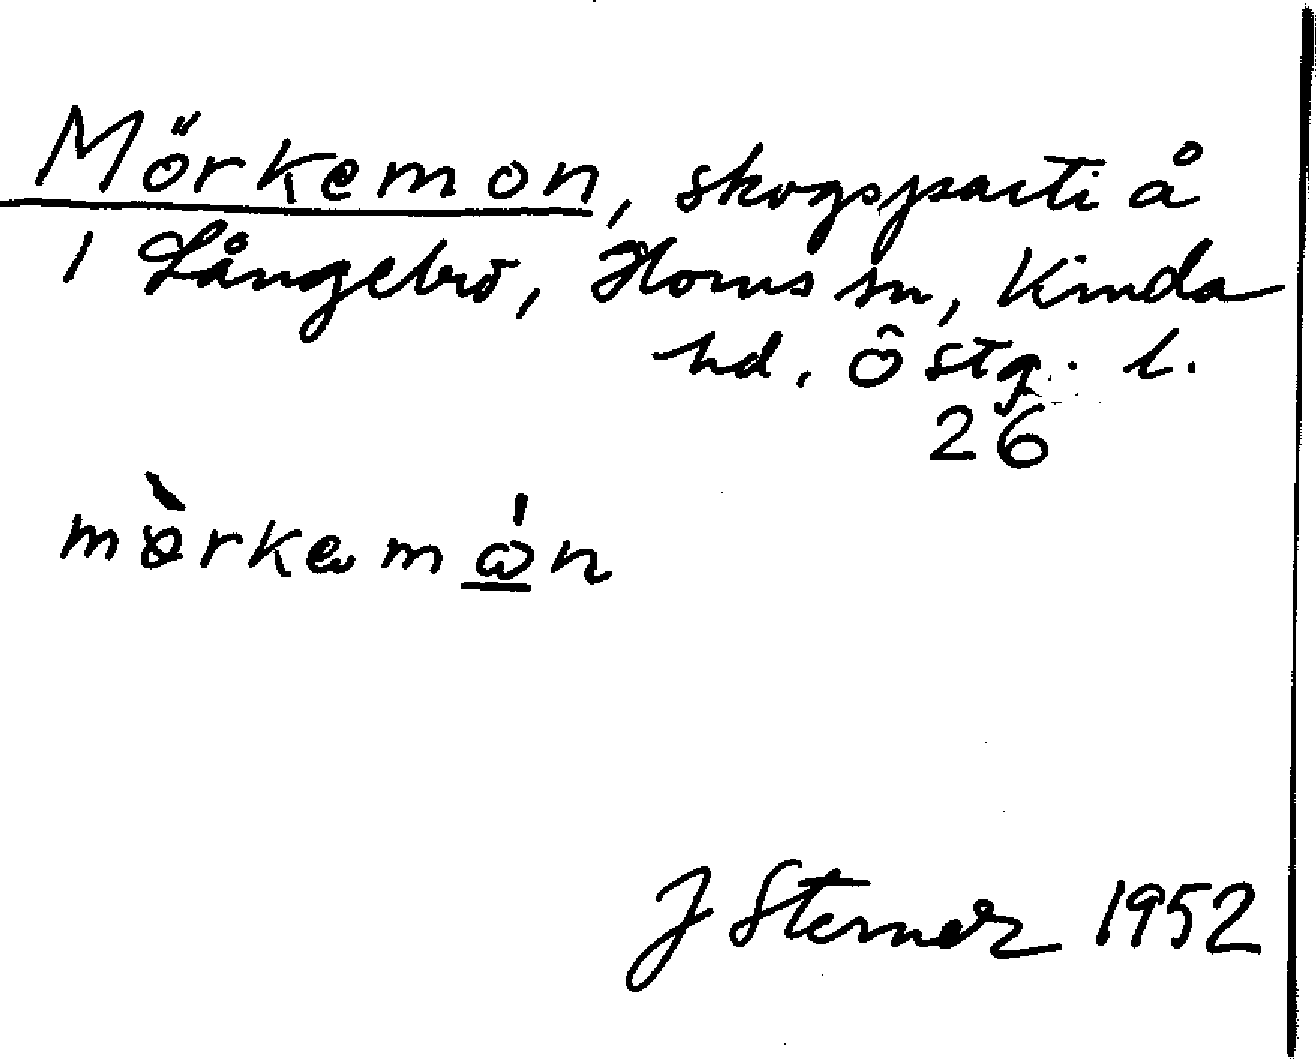 Mörkemon, skogsparti å
1 Långebro, Horns sn, Kinda
hd. Östg. l.
26
mὸrkemώ̲n
J Sterner 1952